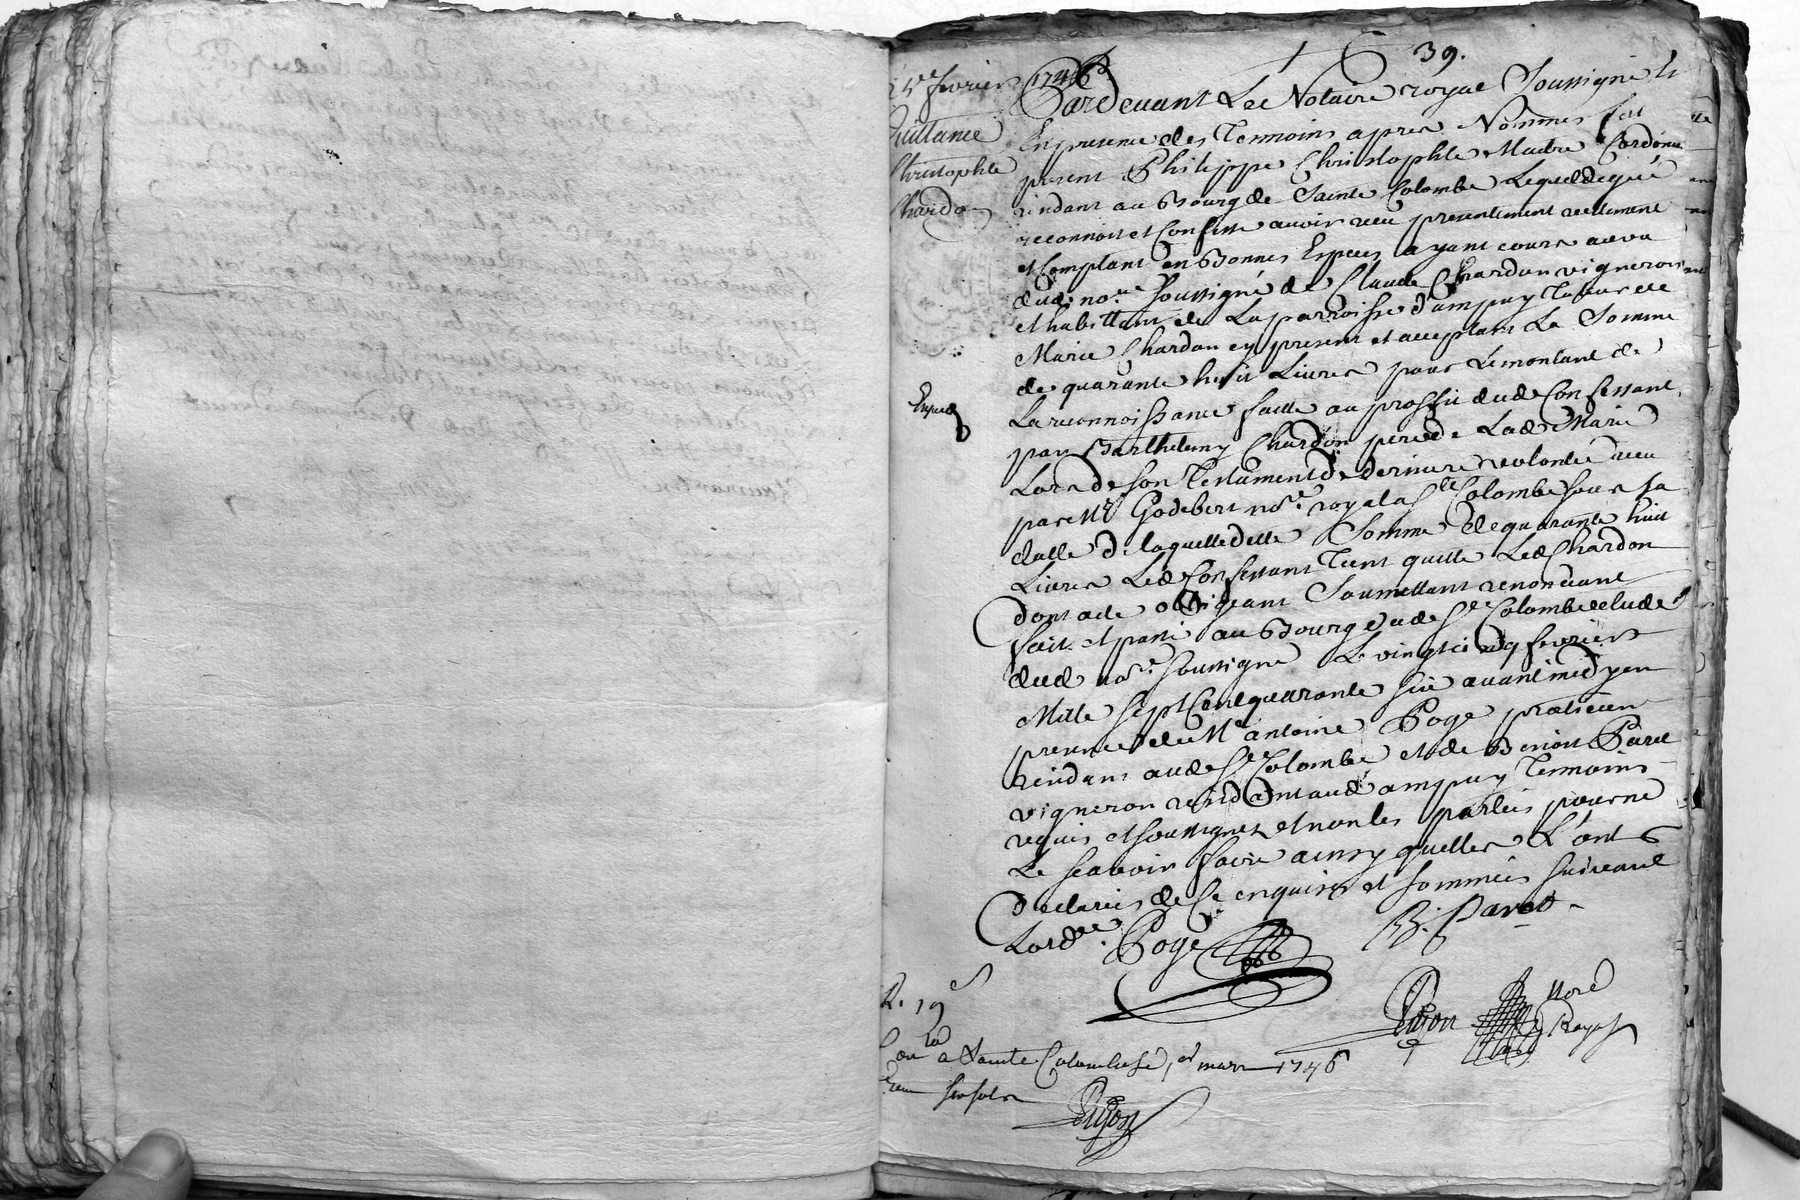 39.
25e fevrier 1746
quittance
Christophle
Chardon
Expedé
Pardevant Le Notaire royal Soussigné Et
En presence des Temoins apres Nommés fut
present Philippe Christophle Maitre Cordonnier
residant au Bourg de Sainte Colombe Lequel de gré
reconnoit et Confesse avoir receu presentement reellement
et Comptant en Bonnes Especes ayant cours au veu
dud. nore. soussigné de Claude Chardon vigneron
et habittant de La parroisse d'ampuy Tuteur de
Marie Chardon cy present et acceptant La Somme
de quarante huit Livres pour Le montant de
La reconnoissance faitte au proffit dud. Confessant
par Barthelemy Chardon pere de Lad. Marie
Lors de son Testament de derniere volonté receu
par Me Godebert nore. royal a Ste Colombe sous sa
datte de laquelle ditte Somme de quarante huit
Livres Led. Confessant Tient quitte Led. Chardon
Dont acte obligeant Soumettant renonceant
fait et passé au Bourg dud. Ste Colombe étude
dud. nore. soussigné Le vingt cinq fevrier
Mille sept Cent quarante six avant midy en
presence de Me antoine Poge praticien
residant aud. Ste Colombe et de Benoit Paret
vigneron residant aud. ampuy Temoins
requis et soussignés et non les parties pour ne
Le scavoir faire ainsy quelles L'ont
Declarées de Ce enquises et sommées suivant
Lordce. Poge B. Paret
nore
Royal
R. 19s
Con la a Sainte Colombe le 1er mars 1746
receu six sols